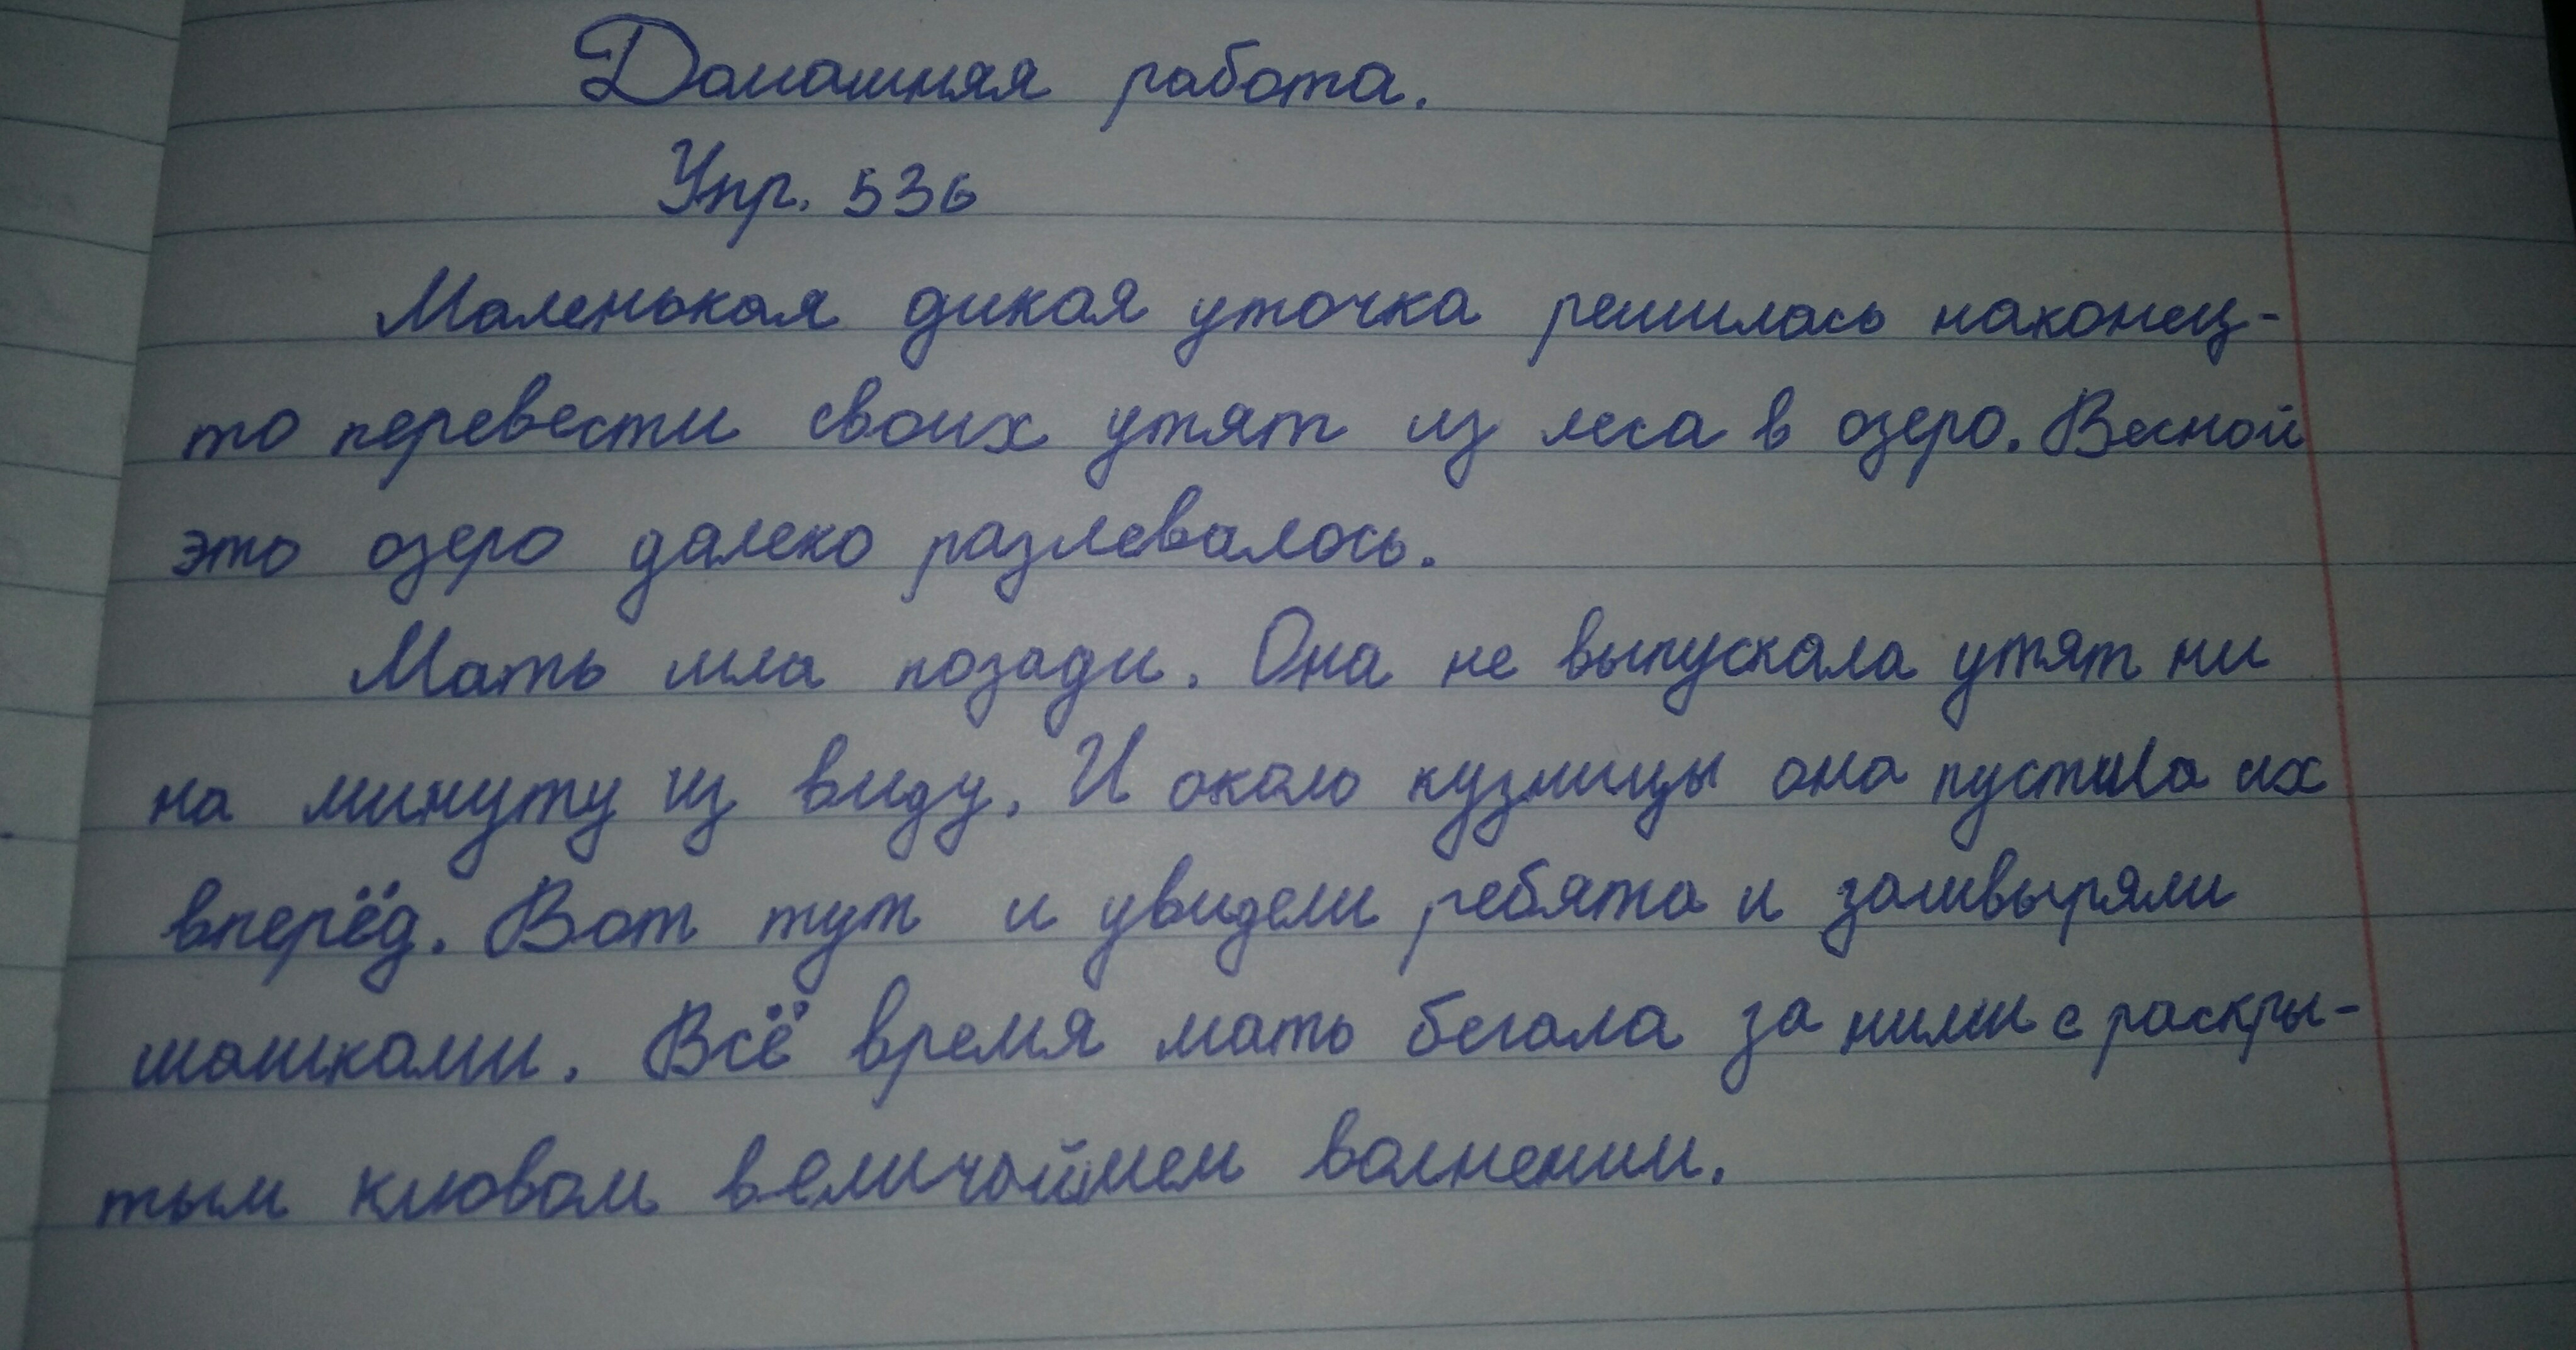 Домашняя работа.
Упр. 536
Маленькая дикая уточка решилась наконец-
то перевести своих утят из леса в озеро. Весной
это озеро далеко разлевалось.
Мать шла позади. Она не выпускала утят ни
на минуту из виду. И около кузницы она пустила их
вперёд. Вот тут и увидели ребята и зашвыряли
шашками. Всё время мать бегала за ними с раскры-
тым клювом величайшем волнении.